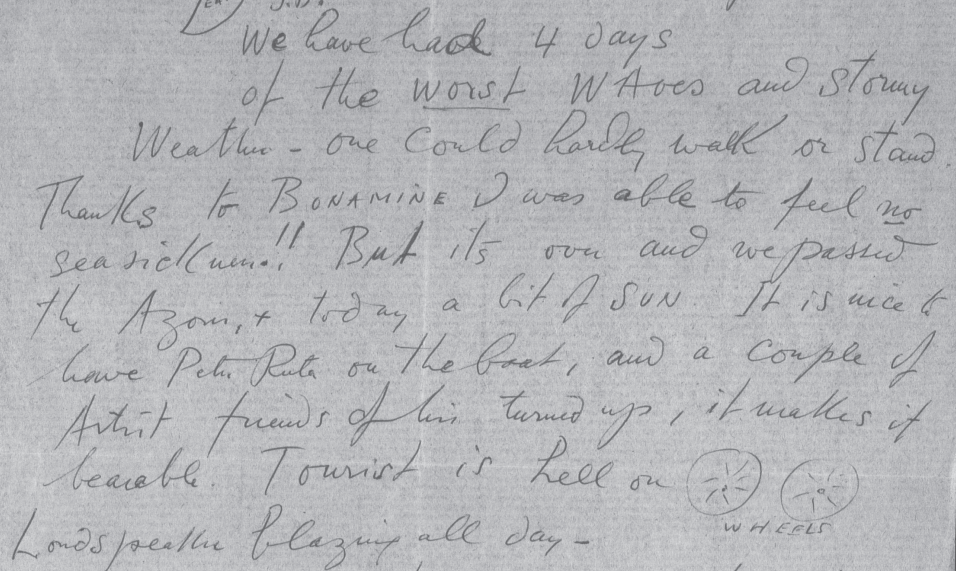 We have had 4 days
of the worst WAves and stormy
Weather - one could hardly walk or stand.
Thanks to BONAMINE I was able to feel no
seasickness!! But its over and we passed
the Azores, + today a bit of SUN. It is nice to
have Peter Ruta on the boat, and a couple of
Artist friends of his turned up, it makes it
bearable. Tourist is hell on
WHEELS
Loudspeaker blazing all day -